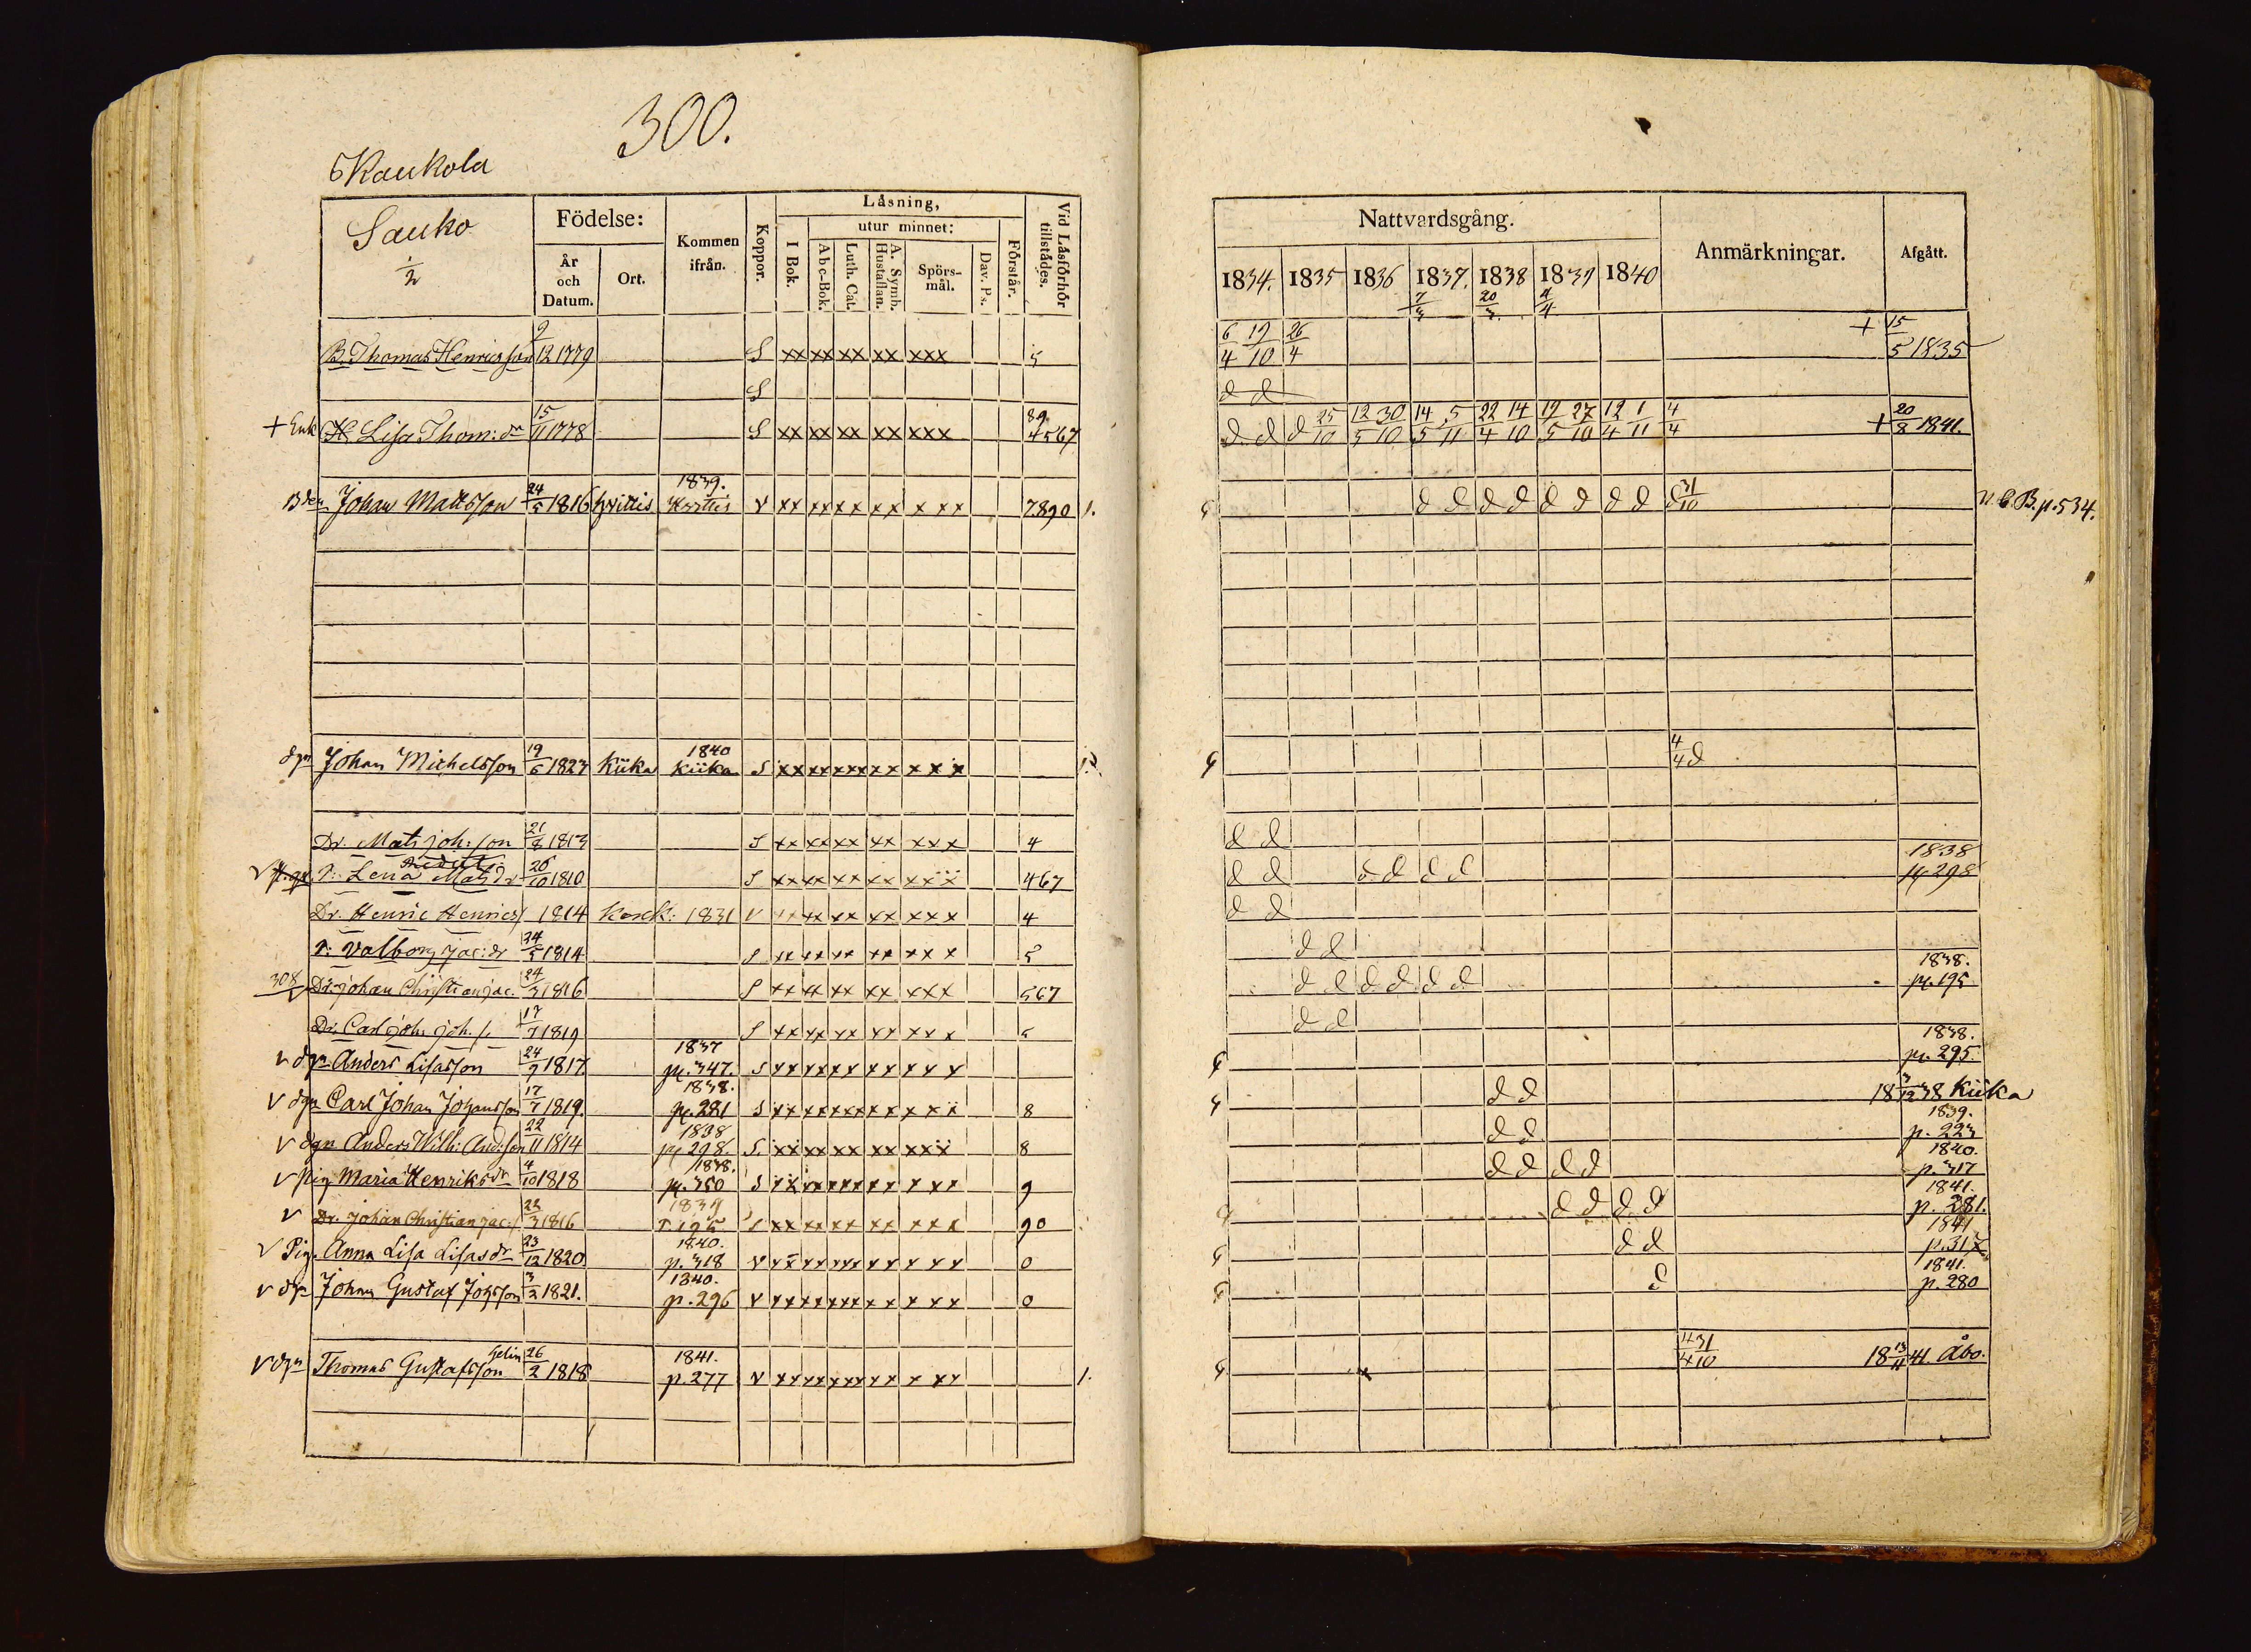 300.
Kaukola
Sauko
1/2
Födelse:
År och Datum.
Ort.
Kommen ifrån.
Koppor.
Läsning,
I Bok.
utur minnet:
Abc-Bok.
Luth. Cat.
A. Symb. Hustaflan.
Spörs-mål.
Dav. Ps.
Förstår.
Vid Läsförhör tillstädes.
Nattvardsgång.
1834. 1835 1836 1837. 1838 1839 1840
Anmärkningar.
Afgått.
B. Thomas Henricsson 9/12 1779 S xx xx xx xx xxx 5 6/4 19/10 26/4 + 15/5 1835
S d d
+ Enk H. Lisa Thom:dr 15/11 1778 S xx xx xx xx xxx 89. 4567 d d d 25/10 12/5 30/10 14/5 5/11 22/4 14/10 12/5 27/10 12/4 1/11 4/4 + 20/8 1841.
Bden Johan Mattsson 24/5 1816 Hvittis 1839. Hvittis v xx xx xx xx x xx 7890 1. d d d d d d d d d 31/10 N.C.B. p. 534.
dgn Johan Michelsson 19/6 1823 Kiika 1840 Kiika S xx xx xxx xx x x x 1. 4/4 d
Dr. Mats Joh:son 21/8 1813 S xx xx xx xx xxx 4 d d
P: Lena Matsdr 26/10 1810 S xx xx xx xx xxx 467 d d d d d d 1838 p. 298
Dr. Henric Henrics 1814 1831 v xx xx xx xx xxx 4 d d
P: Valborg Jac:dr 24/5 1814 S xx xx xx xx xx x 5 d d
308 Dr. Johan Christian Jac. 24/3 1816 S xx xx xx xx xxx 567 d d d d d d 1838. p. 195
Dr. Carl Joh. Joh. s. 17/7 1819 S xx xx xx xx xx x 5 d d
v dgn Anders Lisasson 24/7 1817. 1837 p. 347. S xx xx xx xx x x x 1838. p. 295.
v dgn Carl Johan Johansson 17/7 1819. 1838. p. 281 S xx xx xxx xx x x x 8 d d 18 3/12 38 Kiika
v dgn Anders Wilh: And:son 22/11 1814 1838 p. 298. S. xx xx xx xx xxx 8 d d 1839. p. 223
v Pig. Maria Henriksdr 4/10 1818 1838. p. 350 S xx xx xxx xx x xx 9 d d d d 1840. p. 317
v Dr. Johan Christian Jac:s 22/3 1816 1839 P 195 S xx xx xx xx xxx 90 d d d d 1841. p. 281.
v Pig. Anna Lisa Lisasdr 23/12 1820 1840. p. 318 v xx xx xxx xx x xx 0 d d 1841 p. 317
v dgn Johan Gustaf Johsson 3/2 1821. 1840. p. 296 v xx xx xxx xx x xx 0 d 1841. p. 280
v dgn Thomas Gustafsson Gelin 26/2 1818 1841. p. 277 v xx xx xxx xx x xx 1. 4/4 31/10 18 13/11 41. Åbo.